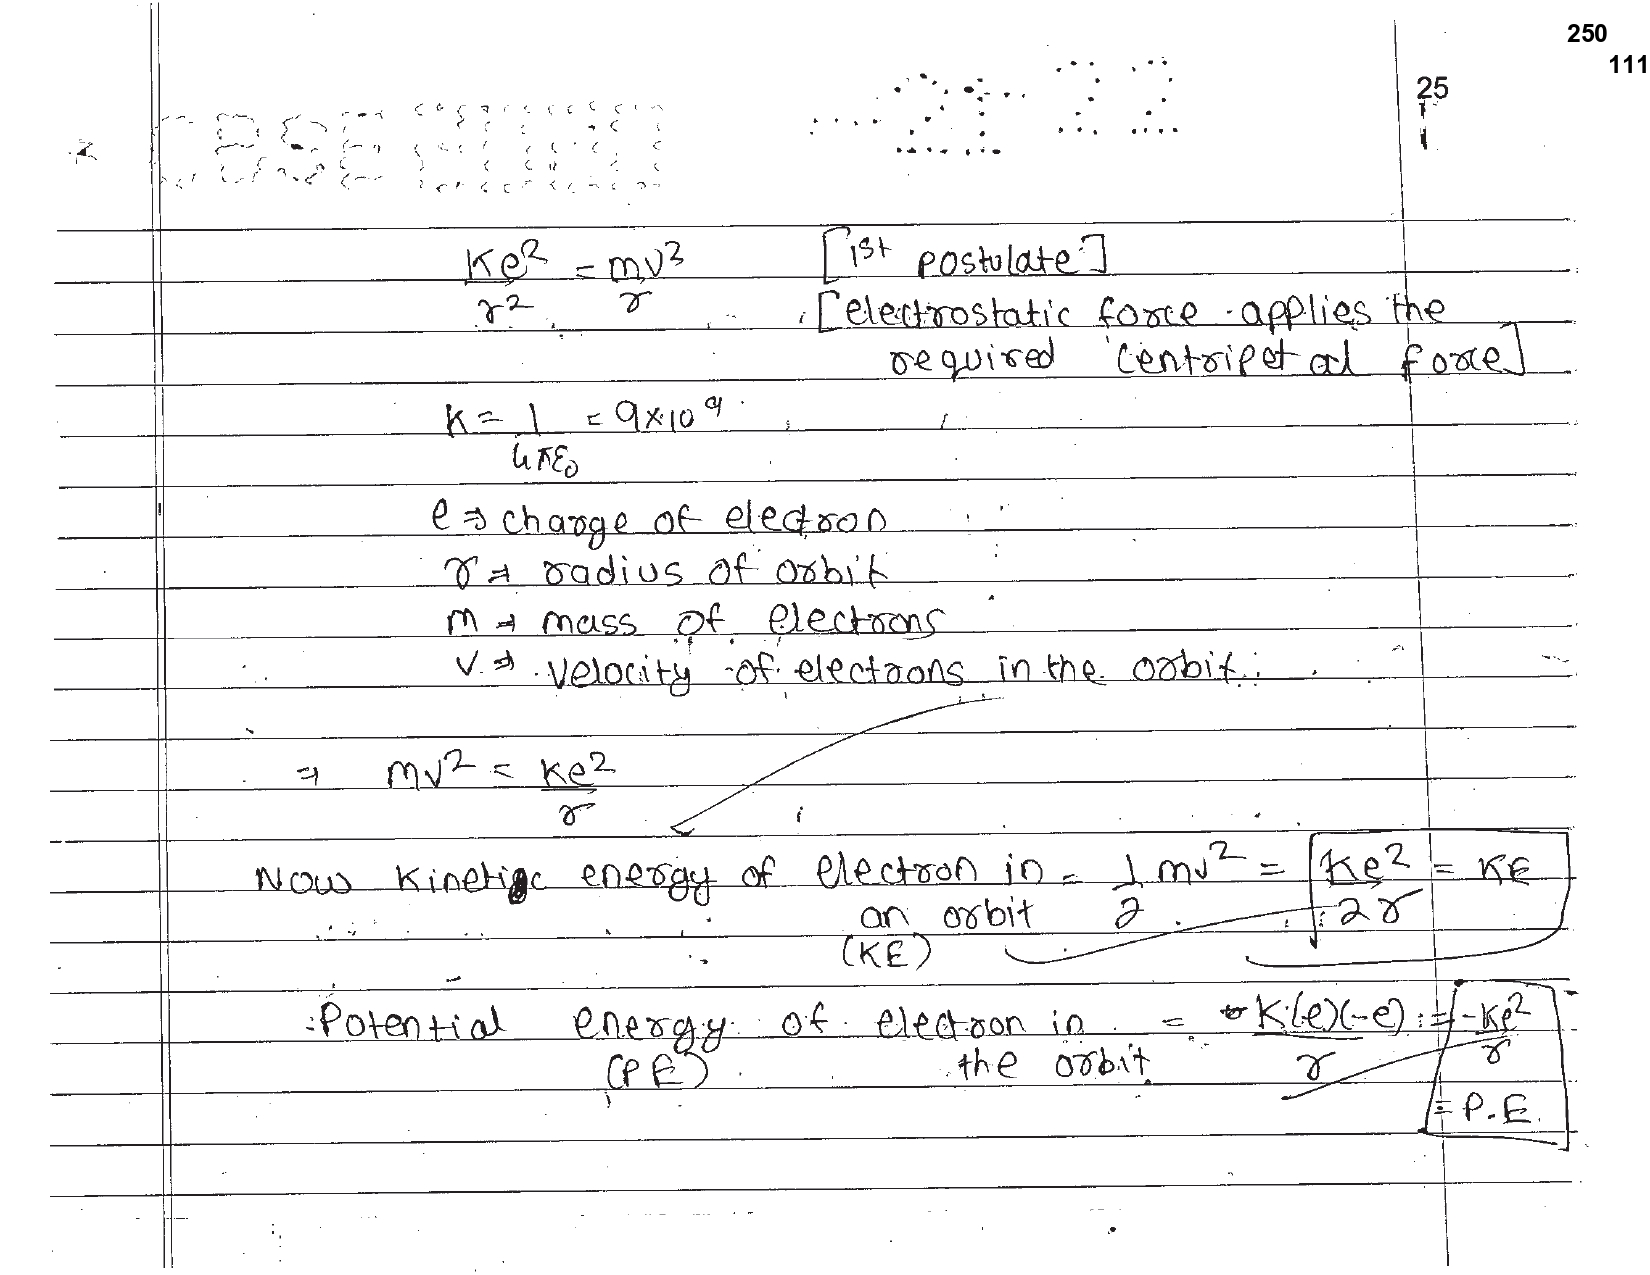 250
111
25
Ke² = mv² [1st postulate]
r² r [electrostatic force applies the
required centripetal force]
K = 1 = 9×10⁹
4πε₀
e ⇒ charge of electron
r ⇒ radius of orbit
m ⇒ mass of electrons
v ⇒ velocity of electrons in the orbit.
⇒ mv² = Ke²
r
Now Kinetic energy of electron in = 1 mv² = Ke² = KE
an orbit 2 2r
(KE)
Potential energy of electron in = K(e)(-e) = -Ke²
(PE) the orbit r r
= P.E.